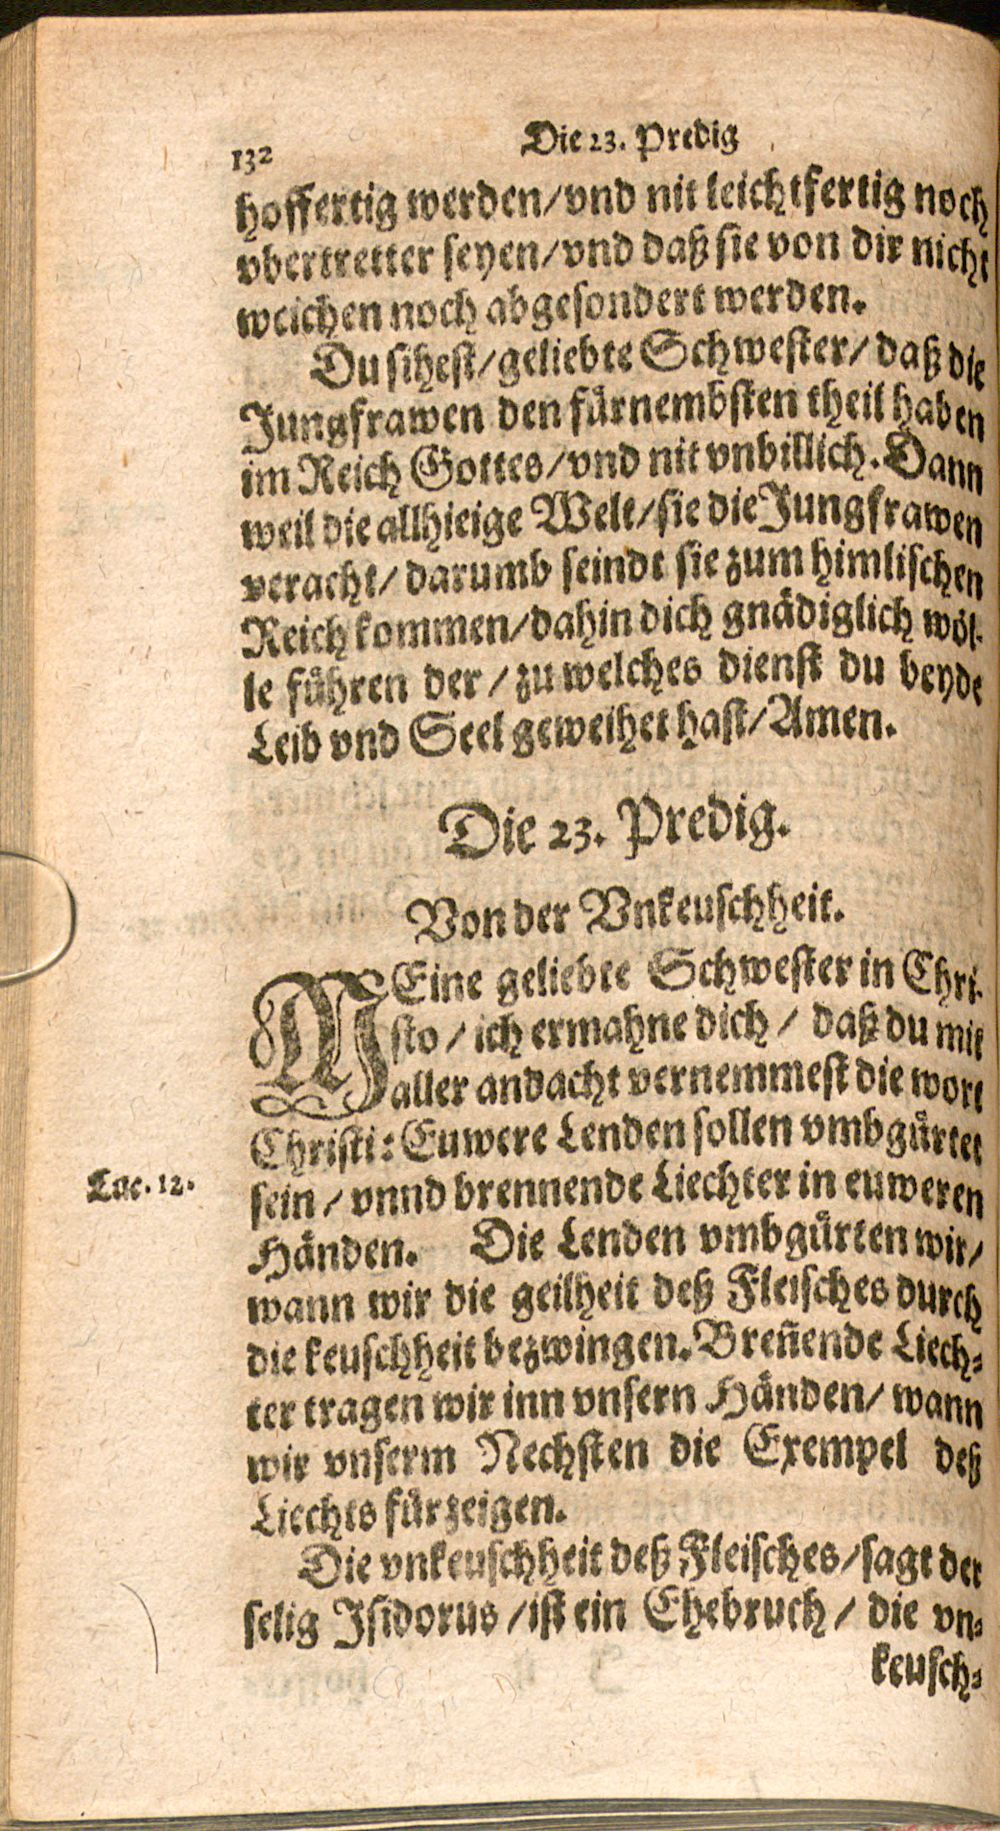 132
Die 23. Predig
hoffertig werden/vnd nit leichtfertig noch
vbertretter seyen/vnd daß sie von dir nicht
weichen noch abgesondert werden.
Du sihest/geliebte Schwester/ daß die
Jungfrawen den fürnembsten theil haben
im Reich Gottes/vnd nit vnbillich. Dann
weil die allhieige Welt/sie die Jungfrawen
veracht/ darumb seindt sie zum himlischen
Reich kommen/dahin dich gnädiglich wöl-
le führen der / zu welches dienst du beyde
Leib vnd Seel geweihet hast/Amen.
Die 23. Predig.
Von der Vnkeuschheit.
MEine geliebte Schwester in Chri-
sto / ich ermahne dich / daß du mit
aller andacht vernemmest die wort
Christi: Euwere Lenden sollen vmbgürtet
Luc. 12.
sein / vnnd brennende Liechter in euweren
Händen. Die Lenden vmbgürten wir/
wann wir die geilheit deß Fleisches durch
die keuschheit bezwingen. Breñende Liech-
ter tragen wir inn vnsern Händen/ wann
wir vnserm Nechsten die Exempel deß
Liechts fürzeigen.
Die vnkeuschheit deß Fleisches/sagt der
selig Isidorus /ist ein Ehebruch / die vn-
keusch-